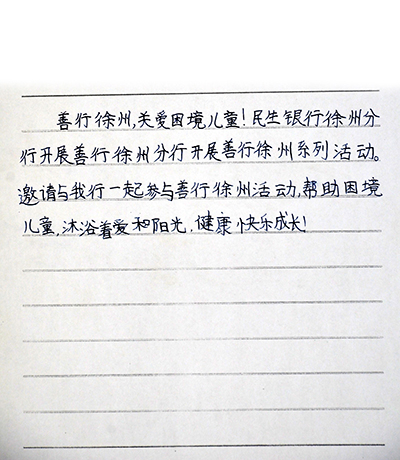 善行徐州,关爱困境儿童!民生银行徐州分
行开展善行徐州分行开展善行徐州系列活动。
邀请与我行一起参与善行徐州活动,帮助困境
儿童,沐浴着爱和阳光,健康快乐成长!